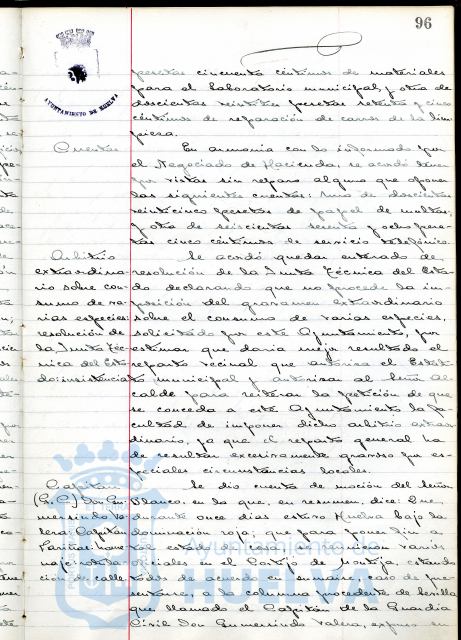 96
AYUNTAMIENTO DE HUELVA
pesetas cincuenta céntimos de materiales
para el Laboratorio municipal y otra de
doscientas veintitres pesetas setenta y cinco
céntimos de reparación de carros de la lim-
pieza.
Cuentas
En armonia con lo informado por
el Negociado de Hacienda, se acordó tener
por vistas sin reparo alguno que oponer
las siguientes cuentas: Una de doscientas
veinticinco pesetas de papel de multas;
y otra de seiscientas sesenta y ocho pese-
tas cinco céntimos de servicio telefónico.
Arbitrio
extraordina-
rio sobre con-
sumo de va-
rias especies:
resolución de
la Junta Téc-
nica del Esta-
do: insistencia
Se acordó quedar enterado de
resolución de la Junta Técnica del Esta-
do declarando que no procede la im-
posición del gravamen extraordinario
sobre el consumo de varias especies,
solicitado por este Ayuntamiento, por
estimar que daria mejor resultado el
reparto vecinal que autoriza el Estatu-
to municipal y autorizar al Señor Al-
calde para reiterar la petición de que
se conceda a este Ayuntamiento la fa-
cultad de imponer dicho arbitrio extraor-
dinario, ya que el reparto general ha
de resultar excesivamente grande por es-
peciales circunstancias locales.
Capitan
(G.C.) Don Gu-
mersindo Va-
lera: Capitán
Fariñas: home-
naje: rotula-
ción de calle
Se dió cuenta de moción del Señor
Blanco, en la que, en resumen, dice: Que
durante once dias estuvo Huelva bajo la
dominación roja; que para poner fin a
tal estado de cosas se reunieron varios
oficiales en el Cortijo de Montija, estando
todos de acuerdo en sumarse, caso de pre-
sentarse, a la columna procedente de Sevilla
que llamado el Capitán de la Guardia
Civil Don Gumersindo Valera, expuso su
Ayuntamiento de
HUELVA